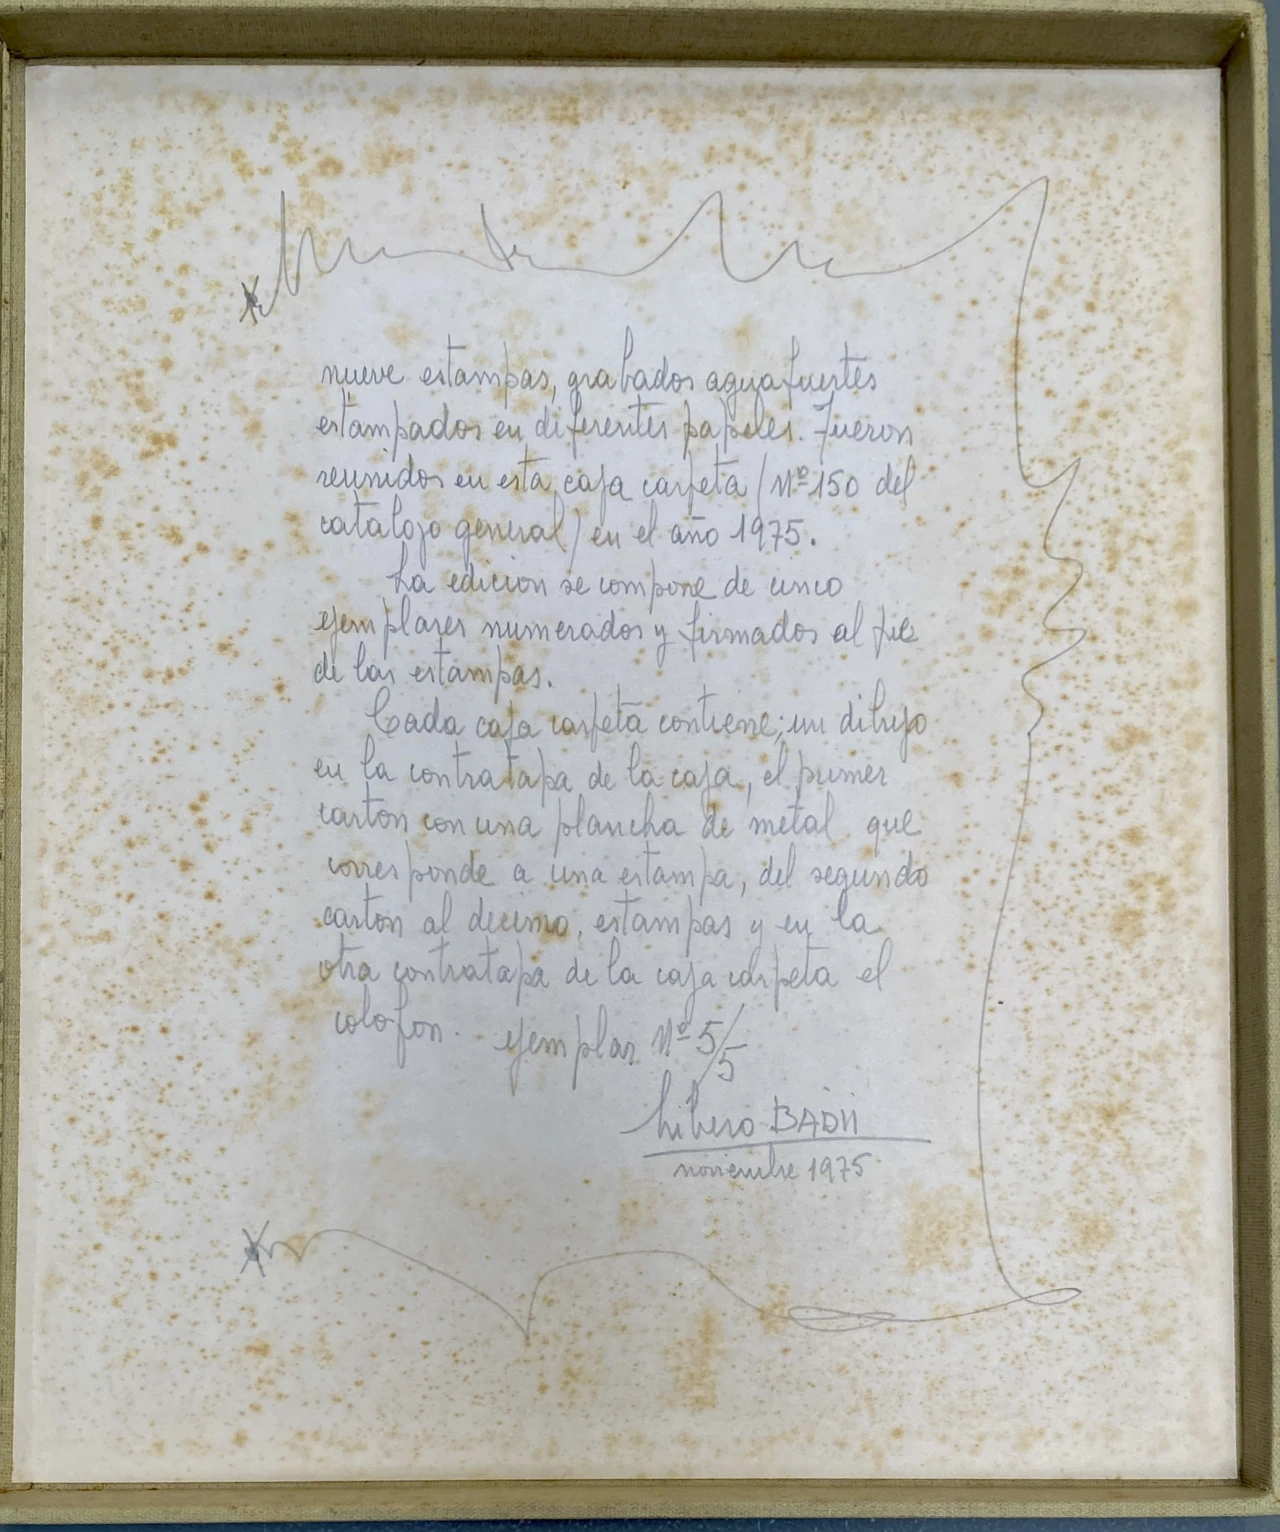 nueve estampas, grabados aguafuertes
estampados en diferentes papeles. Fueron
reunidos en esta caja carpeta (Nº 150 del
catalogo general) en el año 1975.
La edicion se compone de cinco
ejemplares numerados y firmados al pie
de las estampas.
Cada caja carpeta contiene; un dibujo
en la contratapa de la caja, el primer
carton con una plancha de metal que
corresponde a una estampa, del segundo
carton al decimo, estampas y en la
otra contratapa de la caja carpeta el
colofon. ejemplar Nº 5/5
Libero BADII
noviembre 1975